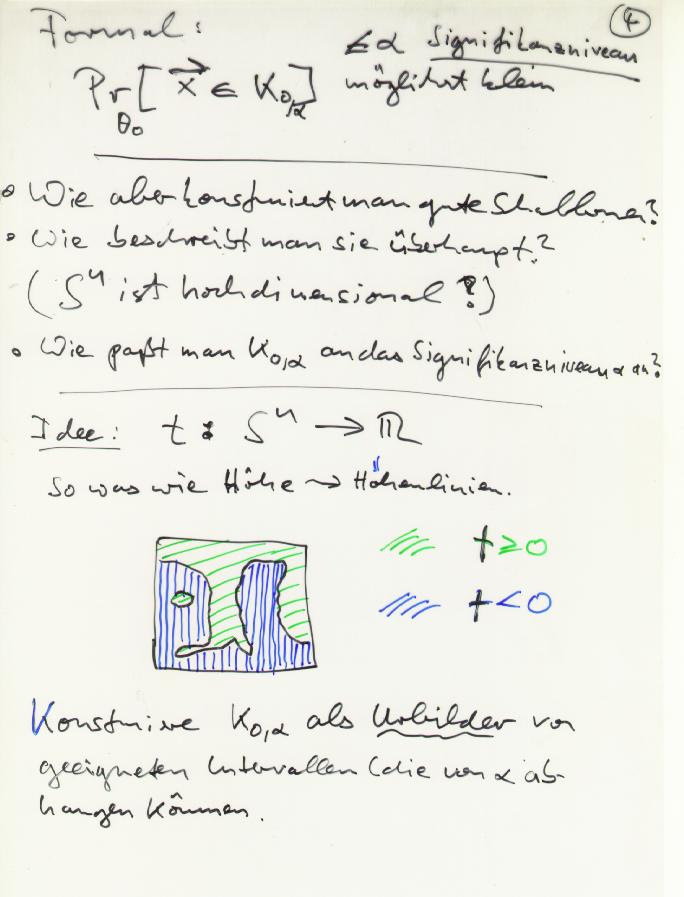 4
Formal:
≤ α Signifikanzniveau
Pr_θ₀[ x⃗ ∈ K₀,α ] möglichst klein
• Wie aber konstruiert man gute Schablonen?
• Wie beschreibt man sie überhaupt?
(Sⁿ ist hochdimensional !)
• Wie paßt man K₀,α an das Signifikanzniveau α an?
Idee: t : Sⁿ → ℝ
So was wie Höhe ⇝ Höhenlinien.
t ≥ 0
t < 0
Konstruiere K₀,α als Urbilder von
geeigneten Intervallen (die von α ab-
hängen können.